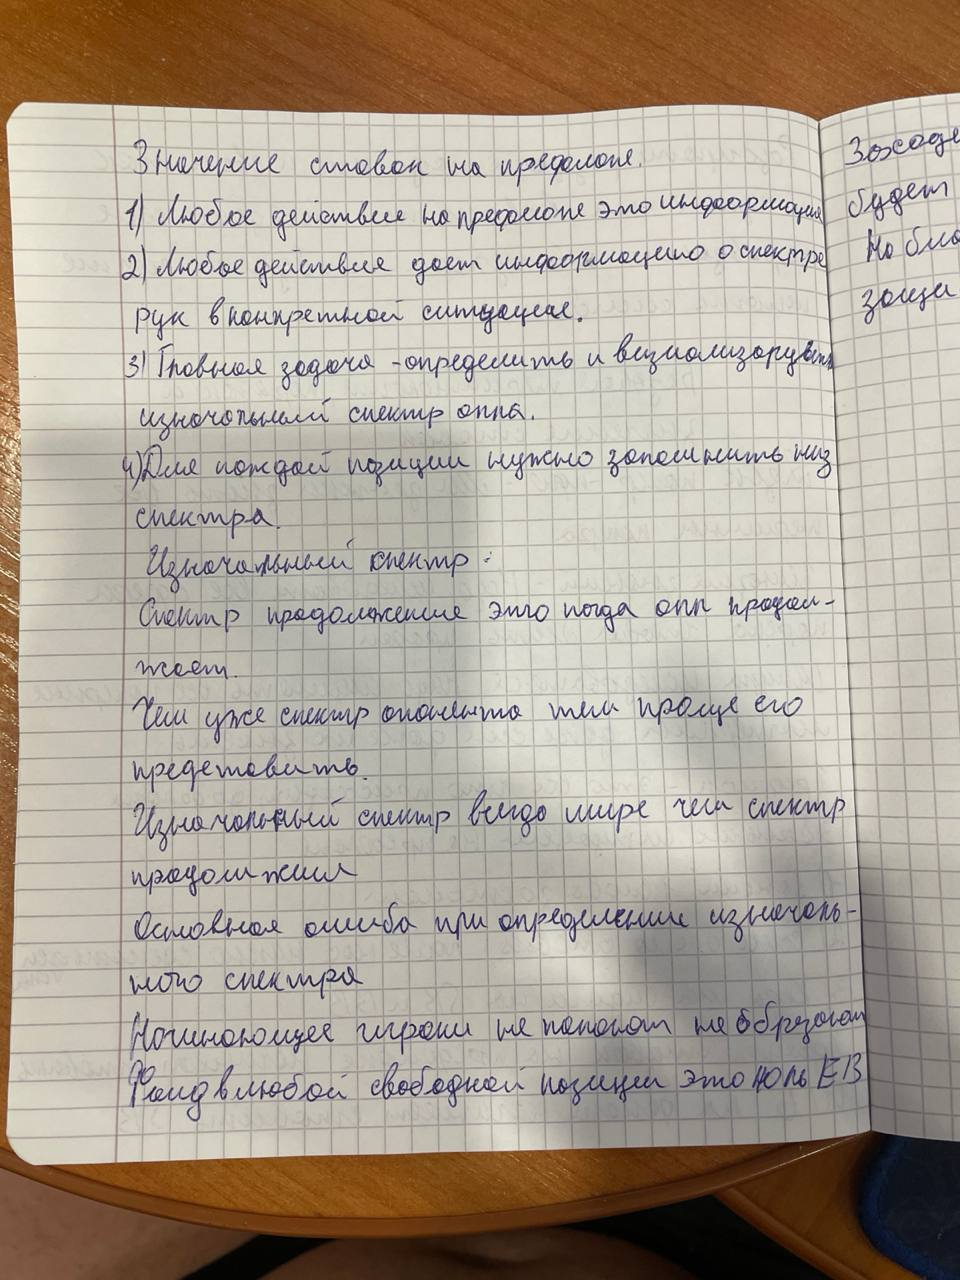 Значение ставок на префлопе.
1) Любое действие на префлопе это информация
2) Любое действия дает информацию о спектре
рук в конкретной ситуации.
3) Главная задача - определить и
изначальный спектр оппа.
4) Для каждой позиции нужно запомнить низ
спектра.
Изначальный спектр :
Спектр продолжение это когда опп продол-
жает.
Чем уже спектр опонента тем проще его
предствавить.
Изначальный спектр всегда шире чем спектр
продолжения
Основная ошиба при определении изначаль-
ного спектра
Начинающее игроки не
Фолд в любой свободной позиции это ноль ЕВ
Зах
будет
На бл
защи